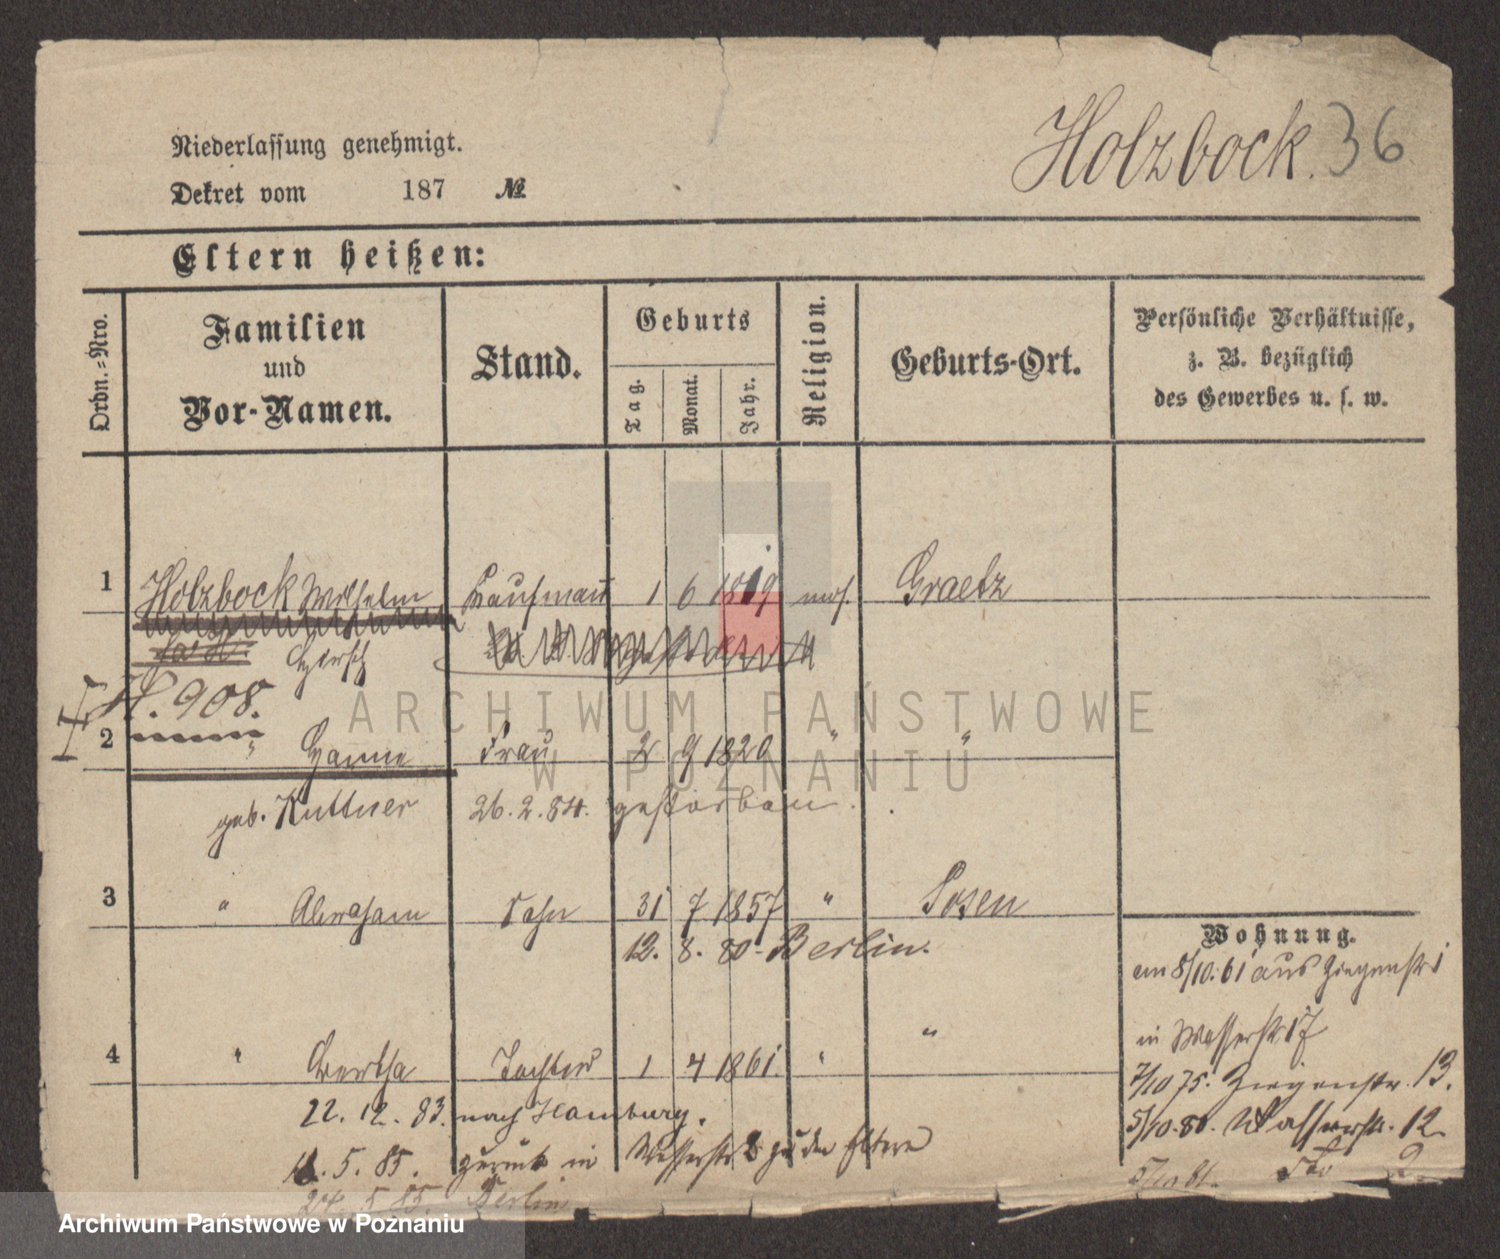 Holzbock. 36
Niederlassung genehmigt.
Dekret vom 187 №
Eltern heißen:
Ordn.-Nro.
Familien
und
Vor-Namen.
Stand.
Geburts
Tag.
Monat.
Jahr.
Religion.
Geburts-Ort.
Persönliche Verhältnisse,
z. B. bezüglich
des Gewerbes u. s. w.
1 Holzbock Wilhelm Kaufmann 1 6 1819 mos. Graetz
Hirsch
H. 908.
2 " Hanne Frau 2 9 1820 " "
geb. Kuttner 26.2.84. gestorben.
3 " Abraham Sohn 31 7 1857 " Posen
12. 8. 80 - Berlin.
4 " Bertha Tochter 1 4 1861. " "
22. 12. 83. nach Hamburg.
11. 5. 85. zurück in Wasserstr 2 zu den Eltern
24. 5. 85. Berlin
Wohnung.
am 8/10.61 aus Ziegenstr
in Wasserstr 17
7/10 75. Ziegenstr. 13.
5/10.80. Wasserstr. 12
5/10 81. dto 2
ARCHIWUM PAŃSTWOWE
W POZNANIU
Archiwum Państwowe w Poznaniu